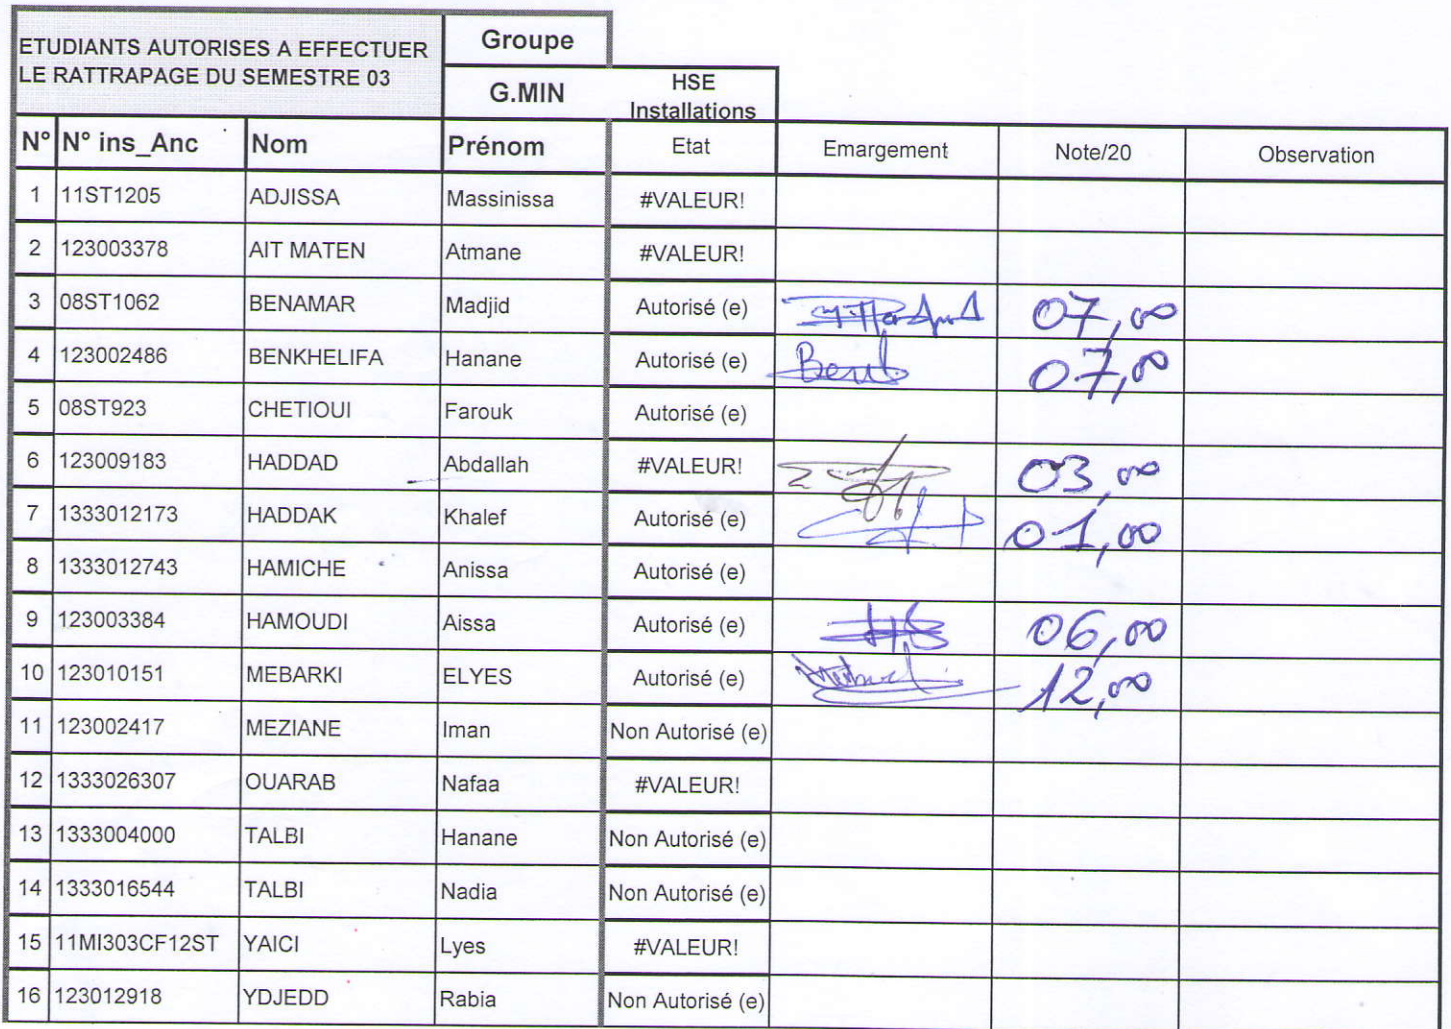 ETUDIANTS AUTORISES A EFFECTUER
LE RATTRAPAGE DU SEMESTRE 03
Groupe
G.MIN
HSE
Installations
N° N° ins_Anc Nom Prénom Etat Emargement Note/20 Observation
1 11ST1205 ADJISSA Massinissa #VALEUR!
2 123003378 AIT MATEN Atmane #VALEUR!
3 08ST1062 BENAMAR Madjid Autorisé (e) 07,00
4 123002486 BENKHELIFA Hanane Autorisé (e) 07,00
5 08ST923 CHETIOUI Farouk Autorisé (e)
6 123009183 HADDAD Abdallah #VALEUR! 03,00
7 1333012173 HADDAK Khalef Autorisé (e) 01,00
8 1333012743 HAMICHE Anissa Autorisé (e)
9 123003384 HAMOUDI Aissa Autorisé (e) 06,00
10 123010151 MEBARKI ELYES Autorisé (e) 12,00
11 123002417 MEZIANE Iman Non Autorisé (e)
12 1333026307 OUARAB Nafaa #VALEUR!
13 1333004000 TALBI Hanane Non Autorisé (e)
14 1333016544 TALBI Nadia Non Autorisé (e)
15 11MI303CF12ST YAICI Lyes #VALEUR!
16 123012918 YDJEDD Rabia Non Autorisé (e)